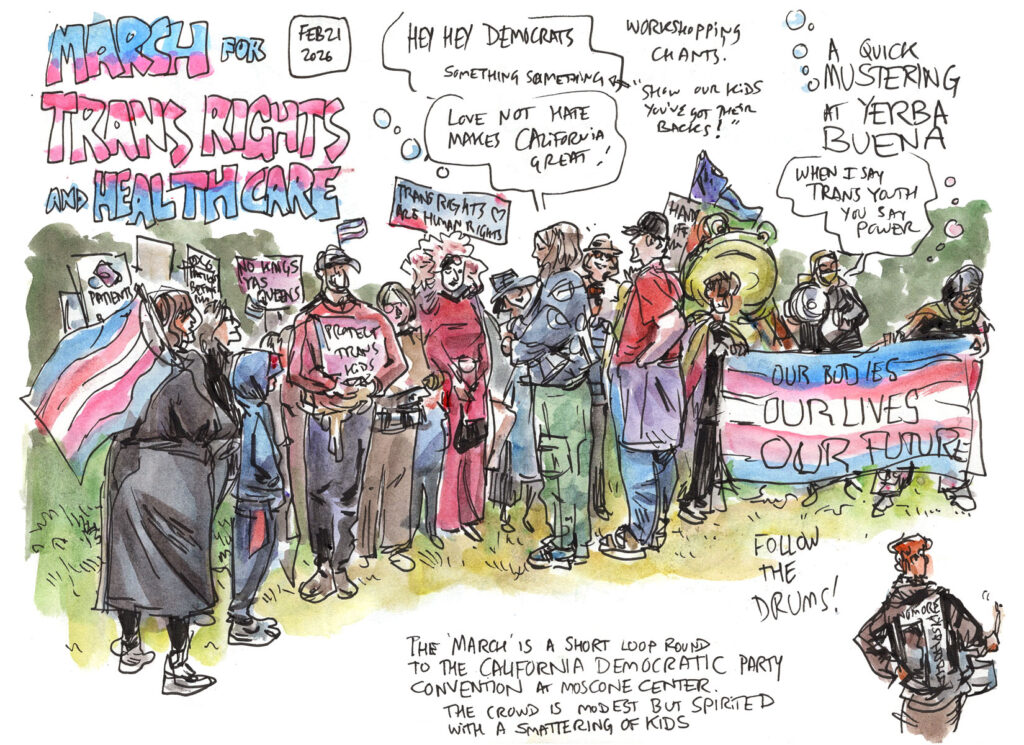 MARCH FOR
TRANS RIGHTS
AND HEALTHCARE
FEB 21
2026
HEY HEY DEMOCRATS
SOMETHING SOMETHING
WORKSHOPPING
CHANTS.
"SHOW OUR KIDS
YOU'VE GOT THEIR
BACKS!"
LOVE NOT HATE
MAKES CALIFORNIA
GREAT!
A QUICK
MUSTERING
AT YERBA
BUENA
WHEN I SAY
TRANS YOUTH
YOU SAY
POWER
TRANS RIGHTS ♡
ARE HUMAN RIGHTS
PATIENT
NO KINGS
YAS
QUEENS
PROTECT
TRANS
KIDS
HANDS
OFF
OUR BODIES
OUR LIVES
OUR FUTURE
FOLLOW
THE
DRUMS!
NO MORE
THE 'MARCH' IS A SHORT LOOP ROUND
TO THE CALIFORNIA DEMOCRATIC PARTY
CONVENTION AT MOSCONE CENTER.
THE CROWD IS MODEST BUT SPIRITED
WITH A SMATTERING OF KIDS